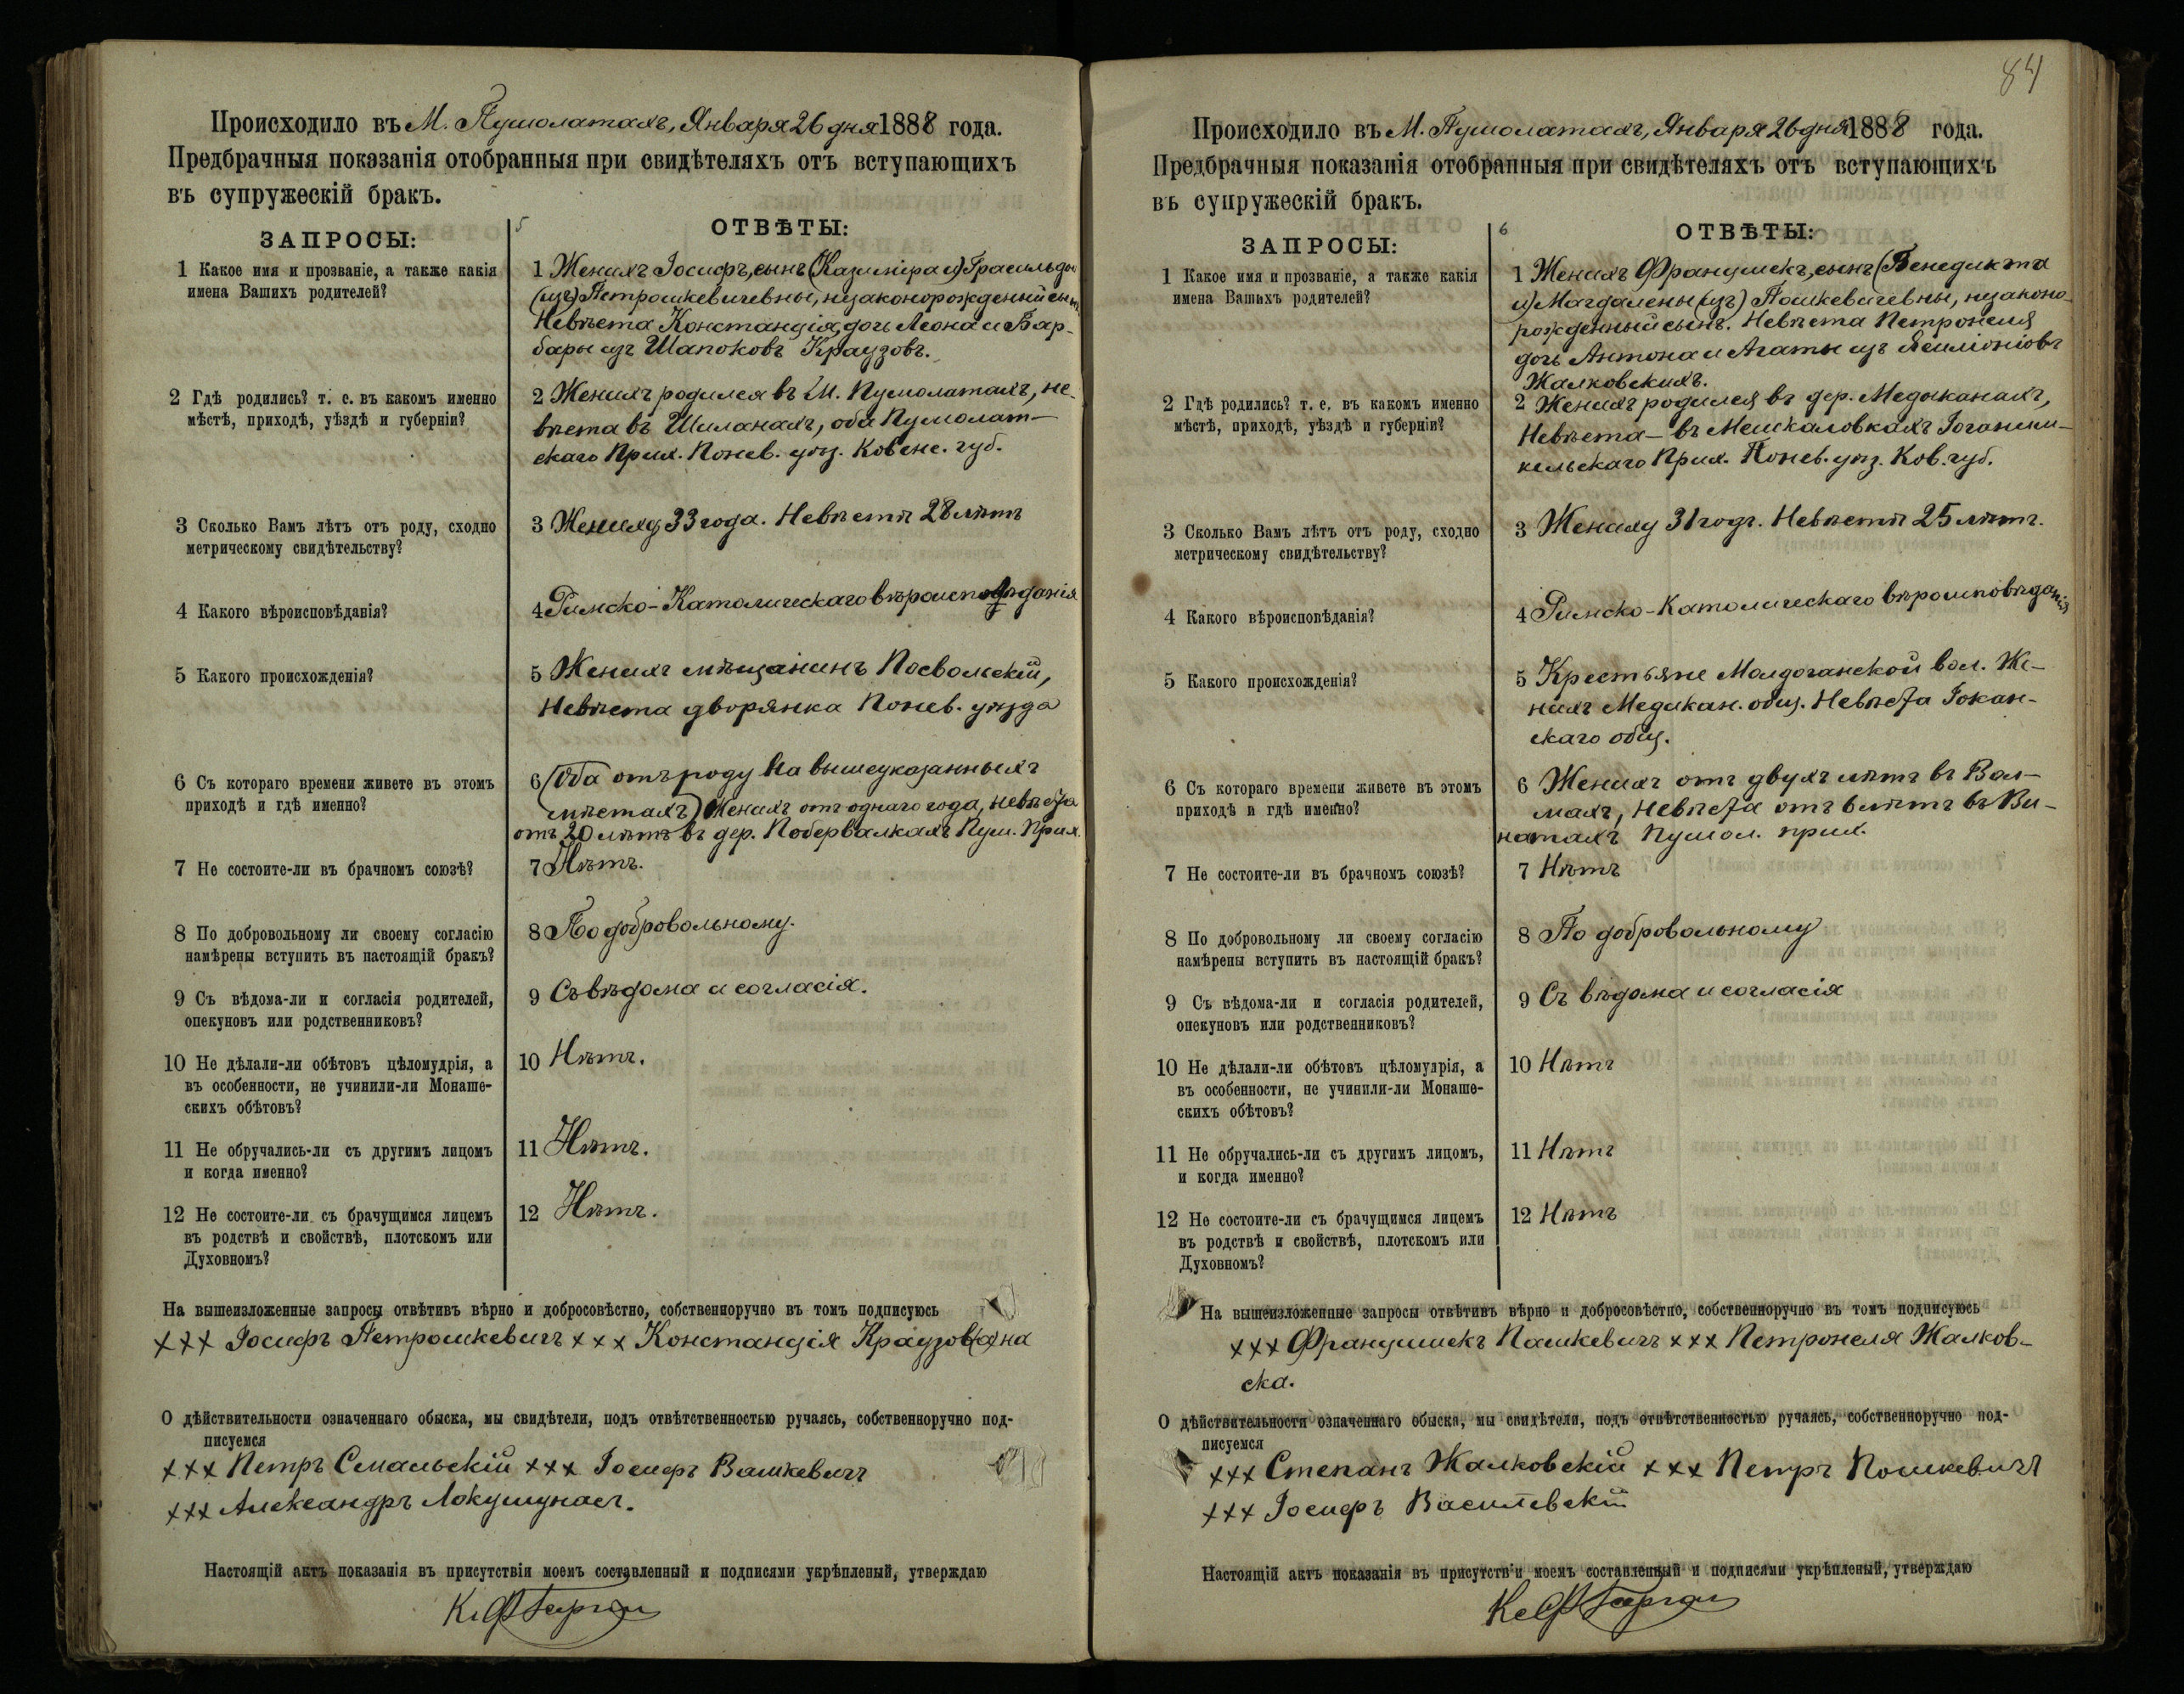 Происходило въ М. Пушолатахъ, Января 26 дня 1888 года.
Предбрачныя показанія отобранныя при свидѣтеляхъ отъ вступающихъ
въ супружескій бракъ.
5
ЗАПРОСЫ:
ОТВѢТЫ:
1 Какое имя и прозваніе, а также какія
имена Вашихъ родителей?
1 Женихъ Іосифъ, сынъ (Казиміра и) Грасильды
(изъ) Петрошкевичевны, незаконорожденный сынъ.
Невѣста Констанція, дочь Леона и Бар-
бары изъ Шапоковъ Краузовъ.
2 Гдѣ родились? т. е. въ какомъ именно
мѣстѣ, приходѣ, уѣздѣ и губерніи?
2 Женихъ родился въ М. Пушолатахъ, не-
вѣста въ Шиланахъ, оба Пушолат-
скаго Прих. Понев. уѣз. Ковенс. губ.
3 Сколько Вамъ лѣтъ отъ роду, сходно
метрическому свидѣтельству?
3 Жениху 33 года. Невѣстѣ 28 лѣтъ
4 Какого вѣроисповѣданія?
4 Римско-Католическаго вѣроисповѣданія
5 Какого происхожденія?
5 Женихъ мѣщанинъ Посвольскій,
Невѣста дворянка Понев. уѣзда
6 Съ котораго времени живете въ этомъ
приходѣ и гдѣ именно?
6 (Оба отъ роду на вышеуказанныхъ
мѣстахъ) Женихъ отъ одного года, невѣста
отъ 20 лѣтъ въ дер. Побервалкахъ Пуш. Прих.
7 Не состоите-ли въ брачномъ союзѣ?
7 Нѣтъ.
8 По добровольному ли своему согласію
намѣрены вступить въ настоящій бракъ?
8 По добровольному.
9 Съ вѣдома-ли и согласія родителей,
опекуновъ или родственниковъ?
9 Съ вѣдома и согласія.
10 Не дѣлали-ли обѣтовъ цѣломудрія, а
въ особенности, не учинили-ли Монаше-
скихъ обѣтовъ?
10 Нѣтъ.
11 Не обручались-ли съ другимъ лицомъ
и когда именно?
11 Нѣтъ.
12 Не состоите-ли съ брачущимся лицемъ
въ родствѣ и свойствѣ, плотскомъ или
Духовномъ?
12 Нѣтъ.
На вышеизложенные запросы отвѣтивъ вѣрно и добросовѣстно, собственноручно въ томъ подписуюсь
××× Іосифъ Петрошкевичъ ××× Констанція Краузов(а)на
О дѣйствительности означеннаго обыска, мы свидѣтели, подъ отвѣтственностью ручаясь, собственноручно под-
писуемся
××× Петръ Смальскій ××× Іосифъ Вашкевичъ
××× Александръ Локушунасъ.
Настоящій актъ показанія въ присутствіи моемъ составленный и подписями укрѣпленый, утверждаю
84
Происходило въ М. Пушолатахъ, Января 26 дня 1888 года.
Предбрачныя показанія отобранныя при свидѣтеляхъ отъ вступающихъ
въ супружескій бракъ.
6
ЗАПРОСЫ:
ОТВѢТЫ:
1 Какое имя и прозваніе, а также какія
имена Вашихъ родителей?
1 Женихъ Францишекъ, сынъ (Бенедикта
и) Магдалены (изъ) Пошкевичевны, незаконо-
рожденный сынъ. Невѣста Петронеля
дочь Антона и Агаты изъ
Жалковскихъ.
2 Гдѣ родились? т. е. въ какомъ именно
мѣстѣ, приходѣ, уѣздѣ и губерніи?
2 Женихъ родился въ дер. Медыканахъ,
Невѣста — въ Мешкаловкахъ Іоганиш-
кельскаго Прих. Понев. уѣз. Ков. губ.
3 Сколько Вамъ лѣтъ отъ роду, сходно
метрическому свидѣтельству?
3 Жениху 31 годъ. Невѣстѣ 25 лѣтъ.
4 Какого вѣроисповѣданія?
4 Римско-Католическаго вѣроисповѣданія
5 Какого происхожденія?
5 Крестьяне Молдочанской вол. Же-
нихъ Медикан. общ. Невѣста Іокан-
скаго общ.
6 Съ котораго времени живете въ этомъ
приходѣ и гдѣ именно?
6 Женихъ отъ двухъ лѣтъ въ Вол-
махъ, Невѣста отъ 6 лѣтъ въ Ви-
натахъ Пушол. прих.
7 Не состоите-ли въ брачномъ союзѣ?
7 Нѣтъ
8 По добровольному ли своему согласію
намѣрены вступить въ настоящій бракъ?
8 По добровольному
9 Съ вѣдома-ли и согласія родителей,
опекуновъ или родственниковъ?
9 Съ вѣдома и согласія
10 Не дѣлали-ли обѣтовъ цѣломудрія, а
въ особенности, не учинили-ли Монаше-
скихъ обѣтовъ?
10 Нѣтъ
11 Не обручались-ли съ другимъ лицомъ,
и когда именно?
11 Нѣтъ
12 Не состоите-ли съ брачущимся лицемъ
въ родствѣ и свойствѣ, плотскомъ или
Духовномъ?
12 Нѣтъ
На вышеизложенные запросы отвѣтивъ вѣрно и добросовѣстно, собственноручно въ томъ подписуюсь
××× Францишекъ Пашкевичъ ××× Петронеля Жалков-
ска.
О дѣйствительности означеннаго обыска, мы свидѣтели, подъ отвѣтственностью ручаясь, собственноручно под-
писуемся
××× Степанъ Жалковскій ××× Петръ Пошкевичъ
××× Іосифъ Василевскій
Настоящій актъ показанія въ присутствіи моемъ составленный и подписями укрѣпленый, утверждаю